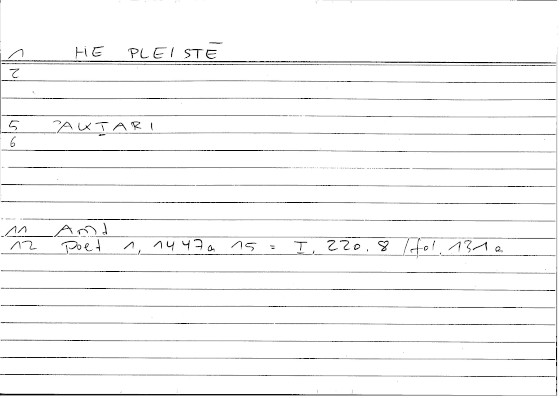 1 HE PLEISTĒ
2
5 ʾAKṮARI
6
11 Arist
12 Poet 1, 1447a 15 = I, 220.8 /fol. 131a